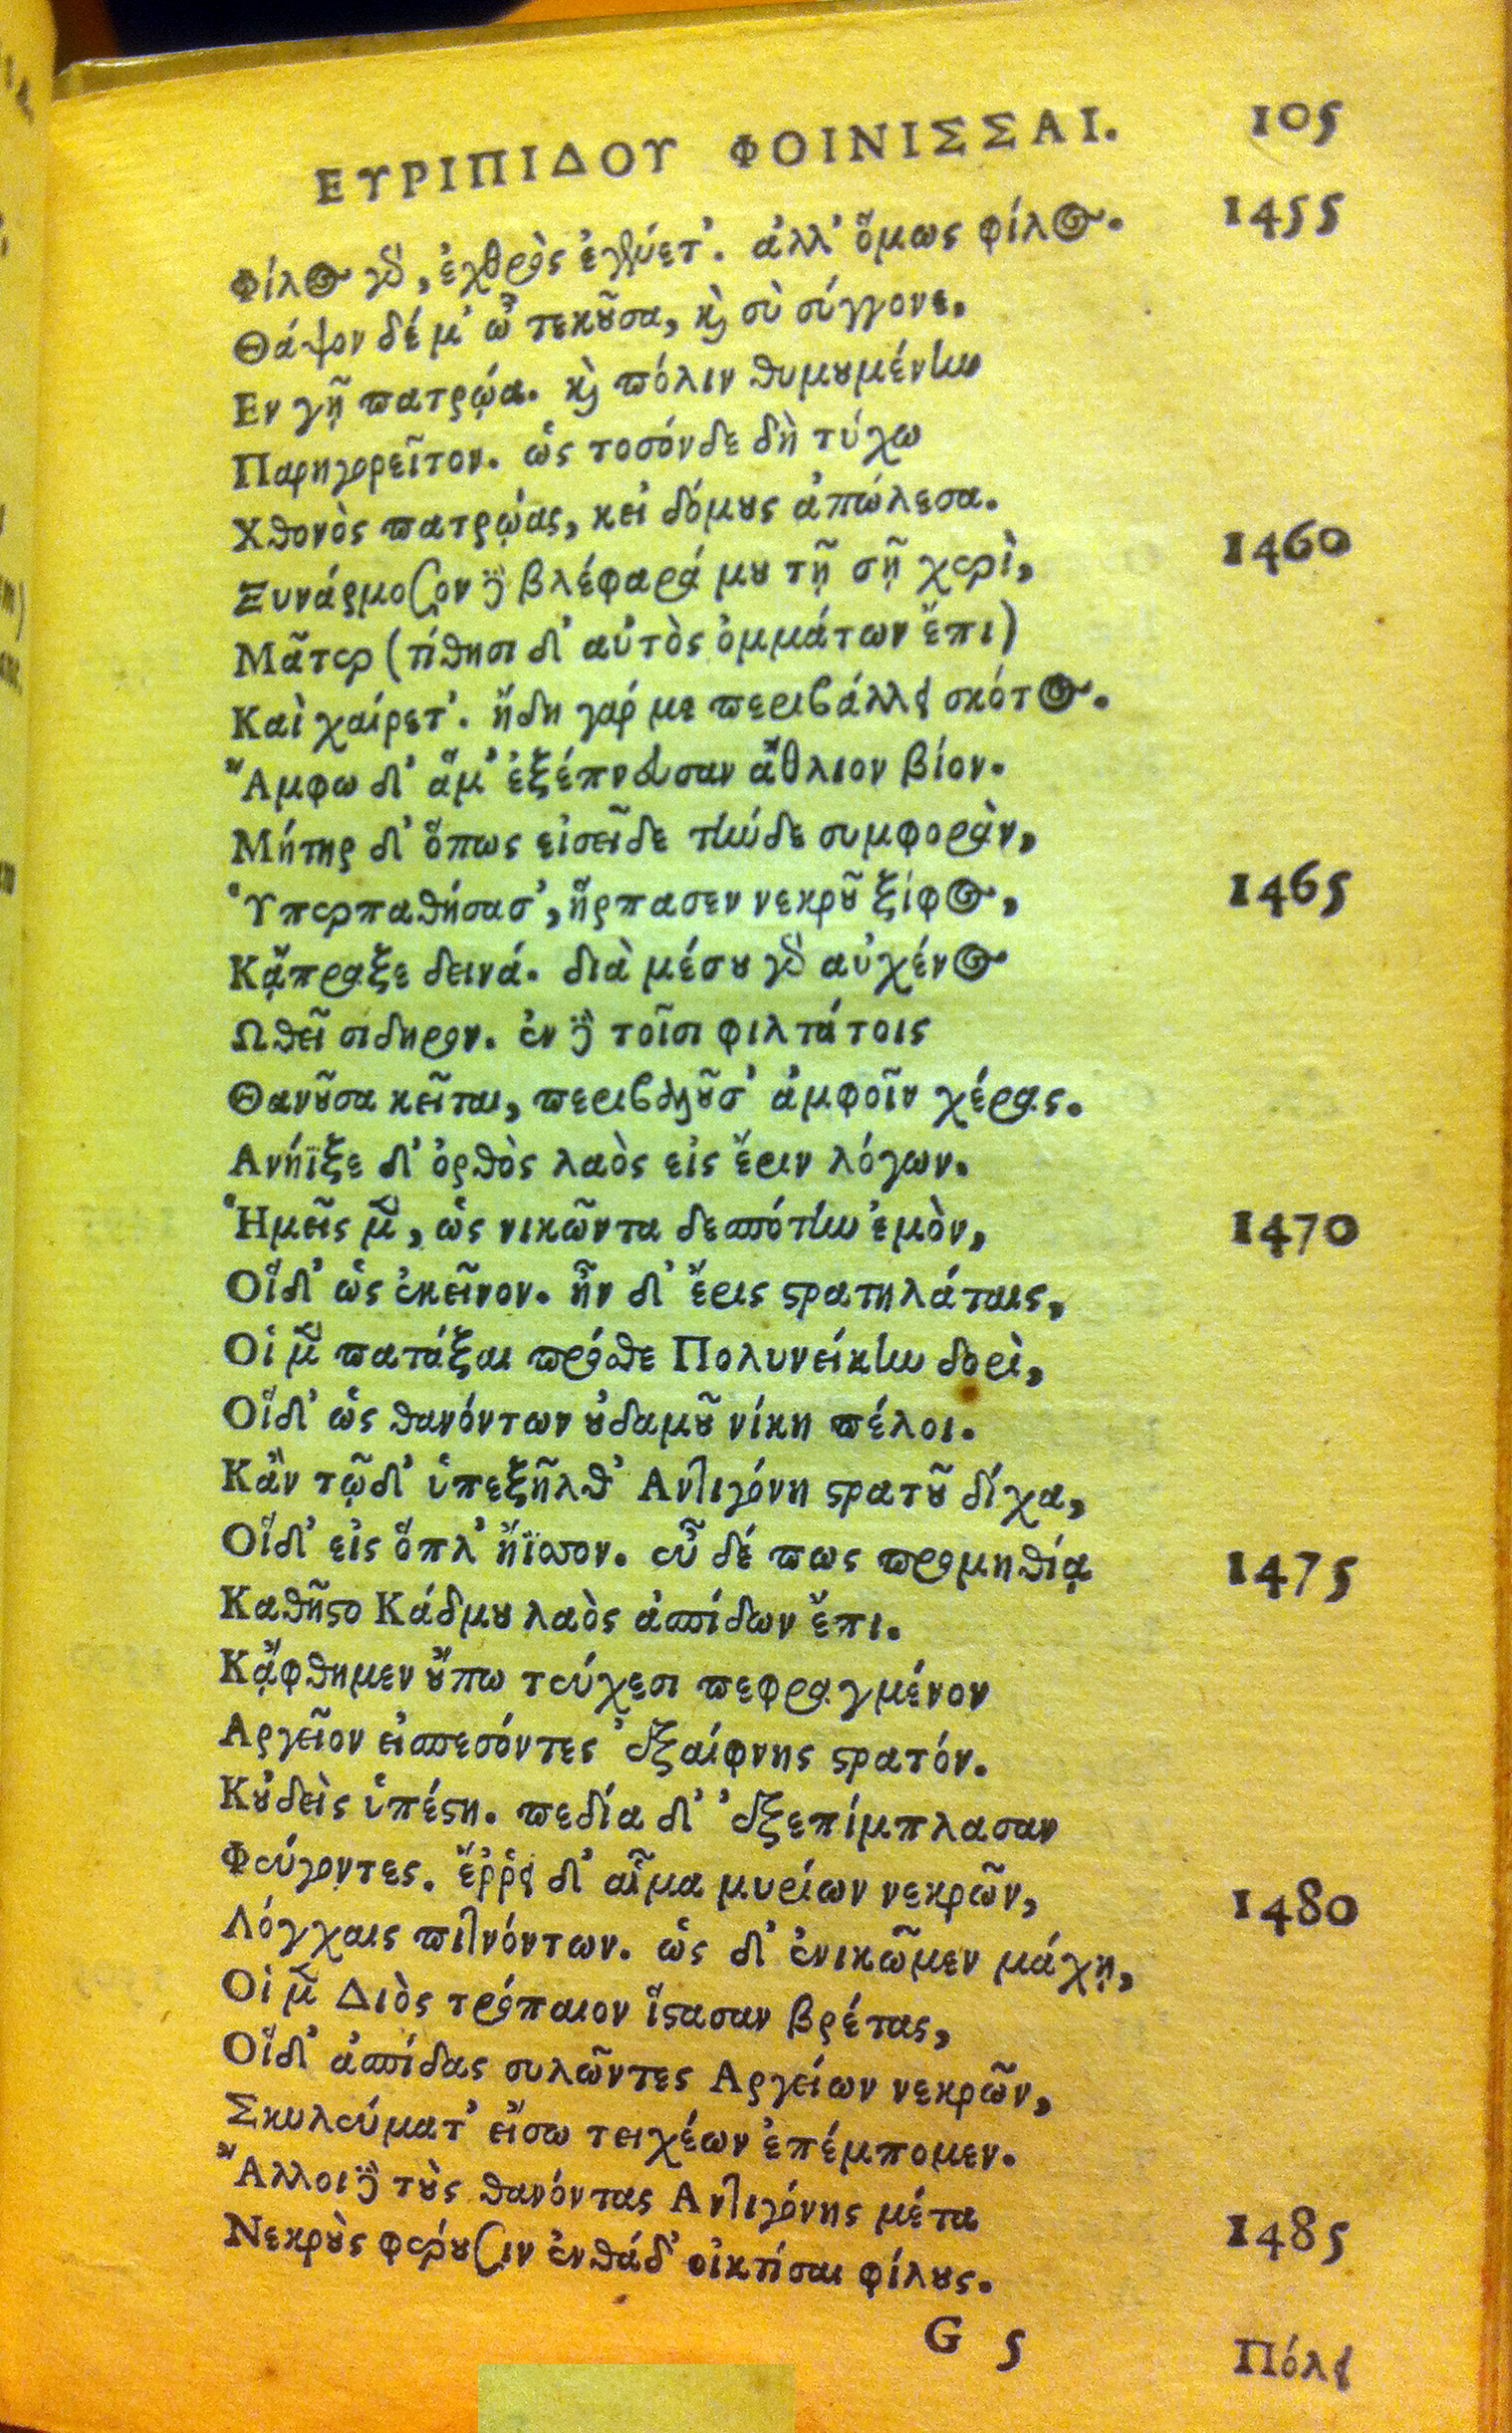 ΕΥΡΙΠΙΔΟΥ ΦΟΙΝΙΣΣΑΙ. 105
Φίλος γὰρ, ἐχθρὸς ἐγένετ'. ἀλλ' ὅμως φίλος. 1455
Θάψον δέ μ' ὦ τεκοῦσα, καὶ σὺ σύγγονε,
Εν γῇ πατρῴα. καὶ πόλιν θυμουμένην
Παρηγορεῖτον. ὡς τοσόνδε δὴ τύχω
Χθονὸς πατρῴας, κεἰ δόμους ἀπώλεσα.
Ξυνάρμοζον δὲ βλέφαρά μου τῇ σῇ χερὶ, 1460
Μᾶτερ (τίθησι δ' αὐτὸς ὀμμάτων ἔπι)
Καὶ χαίρετ'. ἤδη γάρ με περιβάλλει σκότος.
Ἄμφω δ' ἅμ' ἐξέπνευσαν ἄθλιον βίον.
Μήτηρ δ' ὅπως εἰσεῖδε τήνδε συμφορὰν,
Ὑπερπαθήσασ', ἥρπασεν νεκροῦ ξίφος, 1465
Κᾄπραξε δεινά. διὰ μέσου γὰρ αὐχένος
Ωθεῖ σιδηρον. ἐν δὲ τοῖσι φιλτάτοις
Θανοῦσα κεῖται, περιβαλοῦσ' ἀμφοῖν χέρας.
Ανήϊξε δ' ὀρθὸς λαὸς εἰς ἔριν λόγων.
Ἡμεῖς μὲν, ὡς νικῶντα δεσπότην ἐμὸν, 1470
Οἵδ' ὡς ἐκεῖνον. ἦν δ' ἔρις στρατηλάταις,
Οἱ μὲν πατάξαι πρόσθε Πολυνείκην δορὶ,
Οἵδ' ὡς θανόντων οὐδαμοῦ νίκη πέλοι.
Κἂν τῷδ' ὑπεξῆλθ' Αντιγόνη στρατοῦ δίχα,
Οἵδ' εἰς ὅπλ' ἤϊσσον. εὖ δέ πως προμηθίᾳ 1475
Καθῆστο Κάδμου λαὸς ἀσπίδων ἔπι.
Κᾄφθημεν οὔπω τεύχεσι πεφραγμένον
Αργεῖον εἰσπεσόντες ἐξαίφνης στρατόν.
Κοὐδεὶς ὑπέστη. πεδία δ' ἐξεπίμπλασαν
Φεύγοντες. ἔῤῥει δ' αἷμα μυρίων νεκρῶν, 1480
Λόγχαις πιτνόντων. ὡς δ' ἐνικῶμεν μάχῃ,
Οἱ μὲν Διὸς τρόπαιον ἵστασαν βρέτας,
Οἵδ' ἀσπίδας συλῶντες Αργείων νεκρῶν,
Σκυλεύματ' εἴσω τειχέων ἐπέμπομεν.
Ἄλλοι δὲ τοὺς θανόντας Αντιγόνης μέτα 1485
Νεκροὺς φέρουσιν ἐνθάδ' οἰκτίσαι φίλους.
G 5 Πόλει